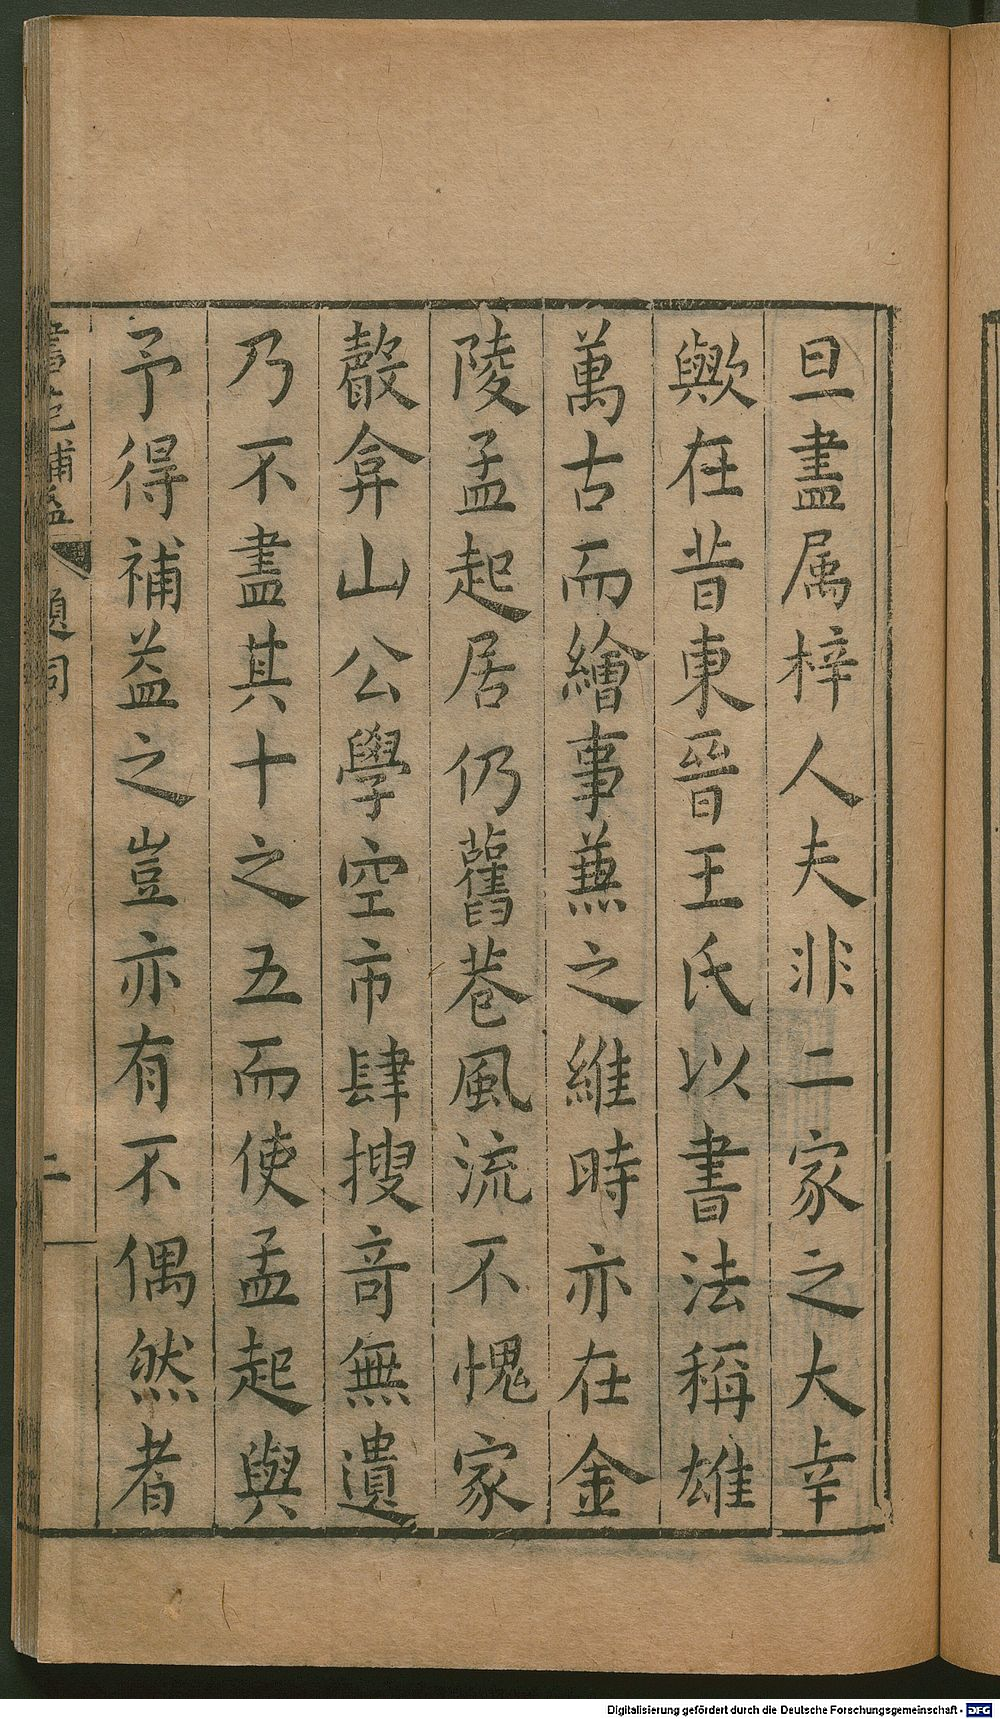 旦盡属梓人夫非二家之大幸
歟在昔東晉王氏以書法稱雄
萬古而繪事蕪之維時亦在金
陵孟起居仍舊巷風流不愧家
殸弇山公學空市肆搜竒無遺
乃不盡其十之五而使孟起與
予得補益之豈亦有不偶然者
補益 題詞 二
Digitalisierung gefördert durch die Deutsche Forschungsgemeinschaft - DFG